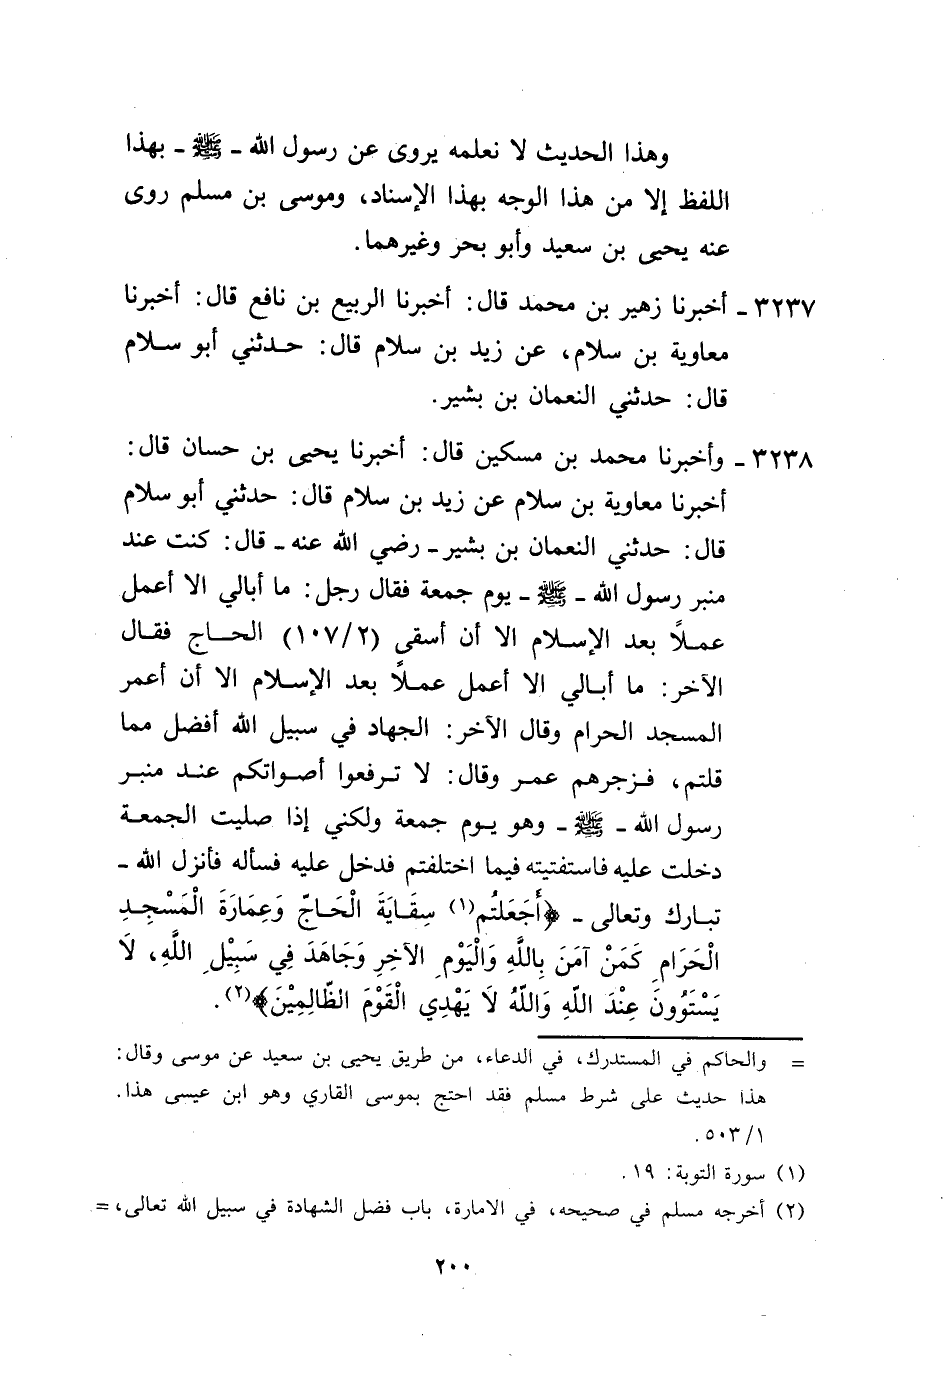 وهذا الحديث لا نعلمه يروى عن رسول الله ـ ﷺ ـ بهذا
اللفظ إلا من هذا الوجه بهذا الإسناد، وموسى بن مسلم روى
عنه يحيى بن سعيد وأبو بحر وغيرهما.
٣٢٣٧ ـ أخبرنا زهير بن محمد قال: أخبرنا الربيع بن نافع قال: أخبرنا
معاوية بن سلام، عن زيد بن سلام قال: حدثني أبو سلام
قال: حدثني النعمان بن بشير.
٣٢٣٨ ـ وأخبرنا محمد بن مسكين قال: أخبرنا يحيى بن حسان قال:
أخبرنا معاوية بن سلام عن زيد بن سلام قال: حدثني أبو سلام
قال: حدثني النعمان بن بشير ـ رضي الله عنه ـ قال: كنت عند
منبر رسول الله ـ ﷺ ـ يوم جمعة فقال رجل: ما أبالي الا أعمل
عملاً بعد الإسلام الا أن أسقى (١٠٧/٢) الحاج فقال
الآخر: ما أبالي الا أعمل عملاً بعد الإسلام الا أن أعمر
المسجد الحرام وقال الآخر: الجهاد في سبيل الله أفضل مما
قلتم، فزجرهم عمر وقال: لا ترفعوا أصواتكم عند منبر
رسول الله ـ ﷺ ـ وهو يوم جمعة ولكني إذا صليت الجمعة
دخلت عليه فاستفتيته فيما اختلفتم فدخل عليه فسأله فأنزل الله ـ
تبارك وتعالى ـ ﴿أَجَعَلتُم(١) سِقَايَةَ الْحَاجّ وَعِمَارَةَ الْمَسْجِدِ
الْحَرَامِ كَمَنْ آمَنَ بِاللَّهِ وَالْيَوْمِ الآخِرِ وَجَاهَدَ فِي سَبِيْلِ اللَّهِ، لَا
يَسْتَوُونَ عِنْدَ اللّهِ وَاللّهُ لَا يَهْدِي الْقَوْمَ الظّالِمِيْنَ﴾(٢).
= والحاكم في المستدرك، في الدعاء، من طريق يحيى بن سعيد عن موسى وقال:
هذا حديث على شرط مسلم فقد احتج بموسى القاري وهو ابن عيسى هذا.
٥٠٣/١.
(١) سورة التوبة: ١٩.
(٢) أخرجه مسلم في صحيحه، في الامارة، باب فضل الشهادة في سبيل الله تعالى، =
٢٠٠